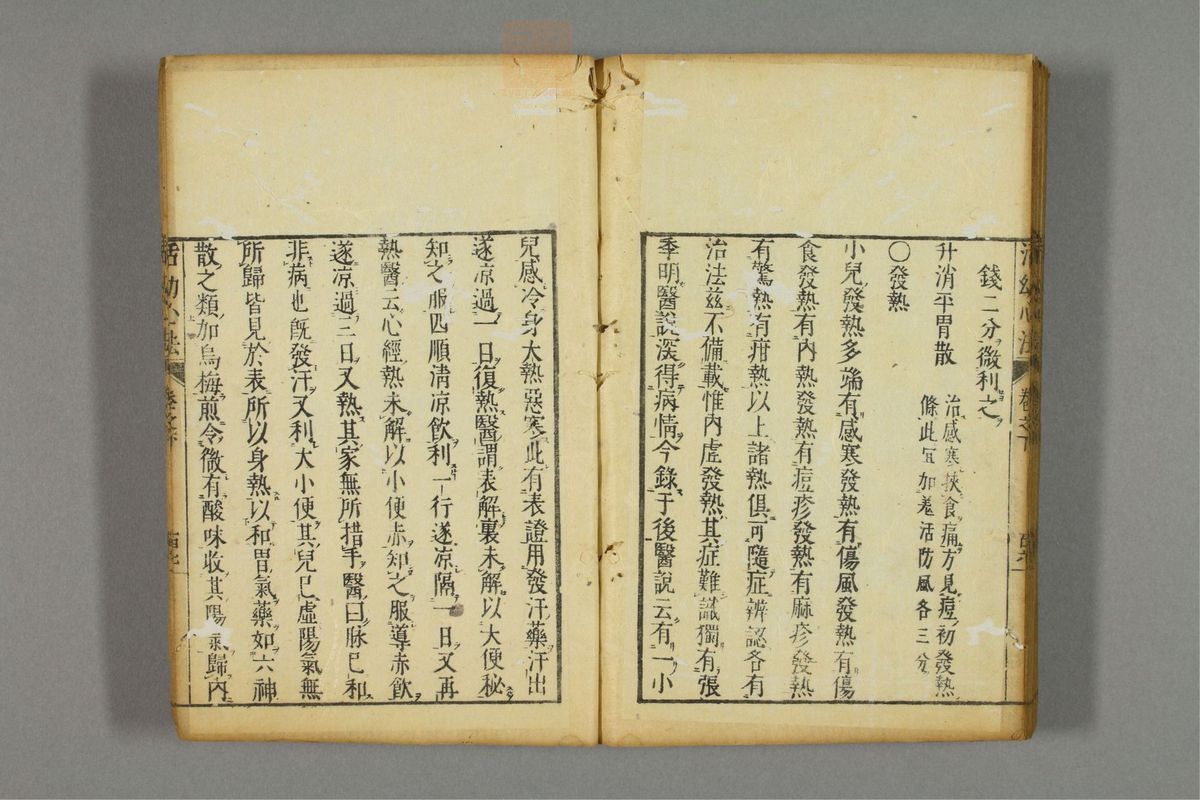 活幼心法 卷之下
錢二分微利之
升消平胃散 治感寒挾食痛方見痘初發熱
條此宜加羗活防風各三分
〇發熱
小兒發熱多端有感寒發熱有傷風發熱有傷
食發熱有內熱發熱有痘疹發熱有麻疹發熱
有驚熱有疳熱以上諸熱俱可隨症辨認各有
治法茲不備載惟內虛發熱其症難識獨有張
季明醫說深得病情今錄于後醫說云有一小
兒感冷身大熱惡寒此有表證用發汗藥汗出
遂凉過一日復熱醫謂表解裏未解以大便秘
知之服四順清凉飲利一行遂凉隔一日又再
熱醫云心經熱未解以小便赤知之服導赤飲
遂凉過三日又熱其家無所措手醫曰脉已和
非病也旣發汗又利大小便其兒已虛陽氣無
所歸皆見於表所以身熱以和胃氣藥如六神
散之類加烏梅煎令微有酸味收其陽氣歸內
活幼心法 卷之下